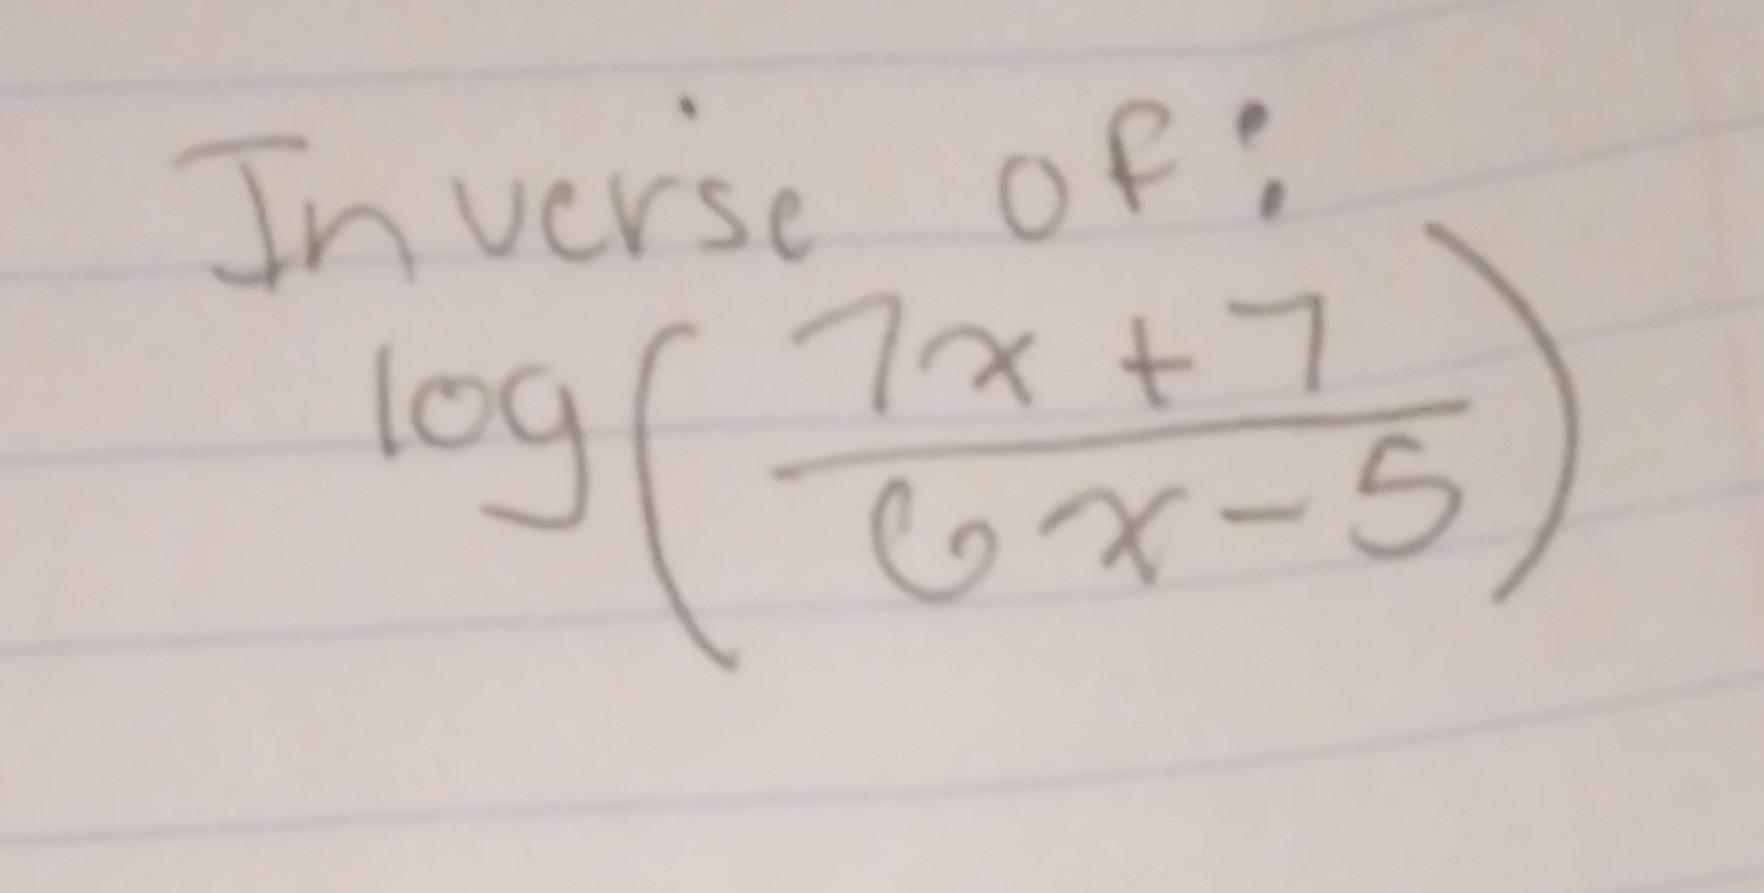 Inverse of:
log(7x + 7 / 6x - 5)